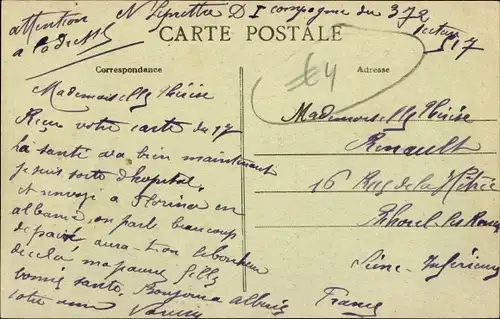 attention N Lepretta D I compagnie du 372
a l'adresse secteur 517
CARTE POSTALE
Correspondance
Adresse
€4
Mademoiselle Thérèse
Reçu votre carte du 17
la santé va bien maintenant
je suis sorti d'hopital
et envoyé a Florina en
albanie, on parle beaucoup
de paix, aura-t-on le bonheur
ma jeune fille
bonne santé. Bonjour a
votre ami
Mademoiselle Thérèse
Renault
16 Rue de la
les Rouen
Seine-Inférieure
France